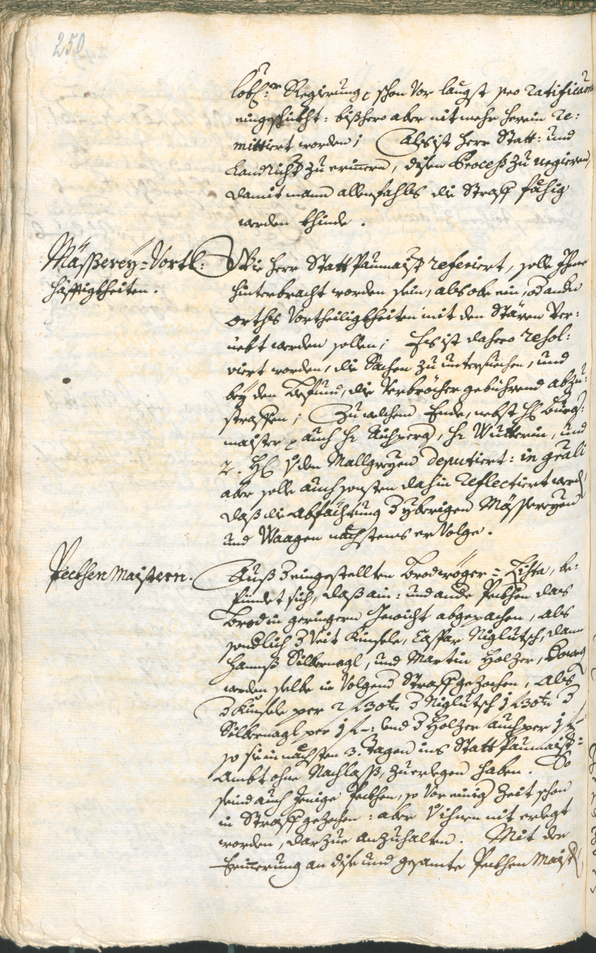 250
löbl: Regierung schon vor längst pro ratificatione
eingeschikht: bißhero aber nit mehr herein re:
mittiert worden; Also ist Herr Statt: und
Landrichter zu erinnern, disen Proceß zu urgieren,
damit mann allenfahls die Straff fähig
werden khinde.
Mässerey-Vortl:
hässtigkheiten.
Wie Herr Statt Paumaister referiert, solle Ihme
hinterbracht worden sein, als ob ein, od andern
orths Vortheilligkheiten mit den Staren ver:
iebt werden sollen; Es ist dahero resol:
viert worden, die Sachen zu untersuechen, und
bey den befund, die Verbrecher gebührend abzu:
straffen; Zu welchem Ende, nebst H: Burger:
maister auch H: H: und
2. H: von den Mallgreyen deputiert: in
aber solle auch sonsten dahin reflectiert werden,
daß die Abfächtung d ybrigen Mässereyen
und Waagen nächstens ervolge.
Pekhen Maistern.
Auß d eingestellten Brodwöger-Lista, be:
findet sich, daß ain: und ander Pekhen das
Brod in geringern Gewicht abgepachen, als
sendlich d Veit Kinsele, Caspar Niglutsch, dann
Hannß Silbernagl, und Martin Holzer,
werden selbe in volgend Straff gezochen, als
d Kinsele per 2 f 30 kr, d Niglutsch 1 f 30 kr, d
Silbernagl per 1 f: und d Holzer auch per 1 f
so sie in nächsten 3. Tagen ins Statt Paumaister:
Ambt ohne Nachlaß, zuerlegen haben. So
seind auch jenige Pekhen, so vor einig Zeit schon
in Straff gezochen: aber von ihnen nit erlegt
worden, darzue anzuhalten. Mit der
Erinnerung an dise und gesamte Pekhen Maister